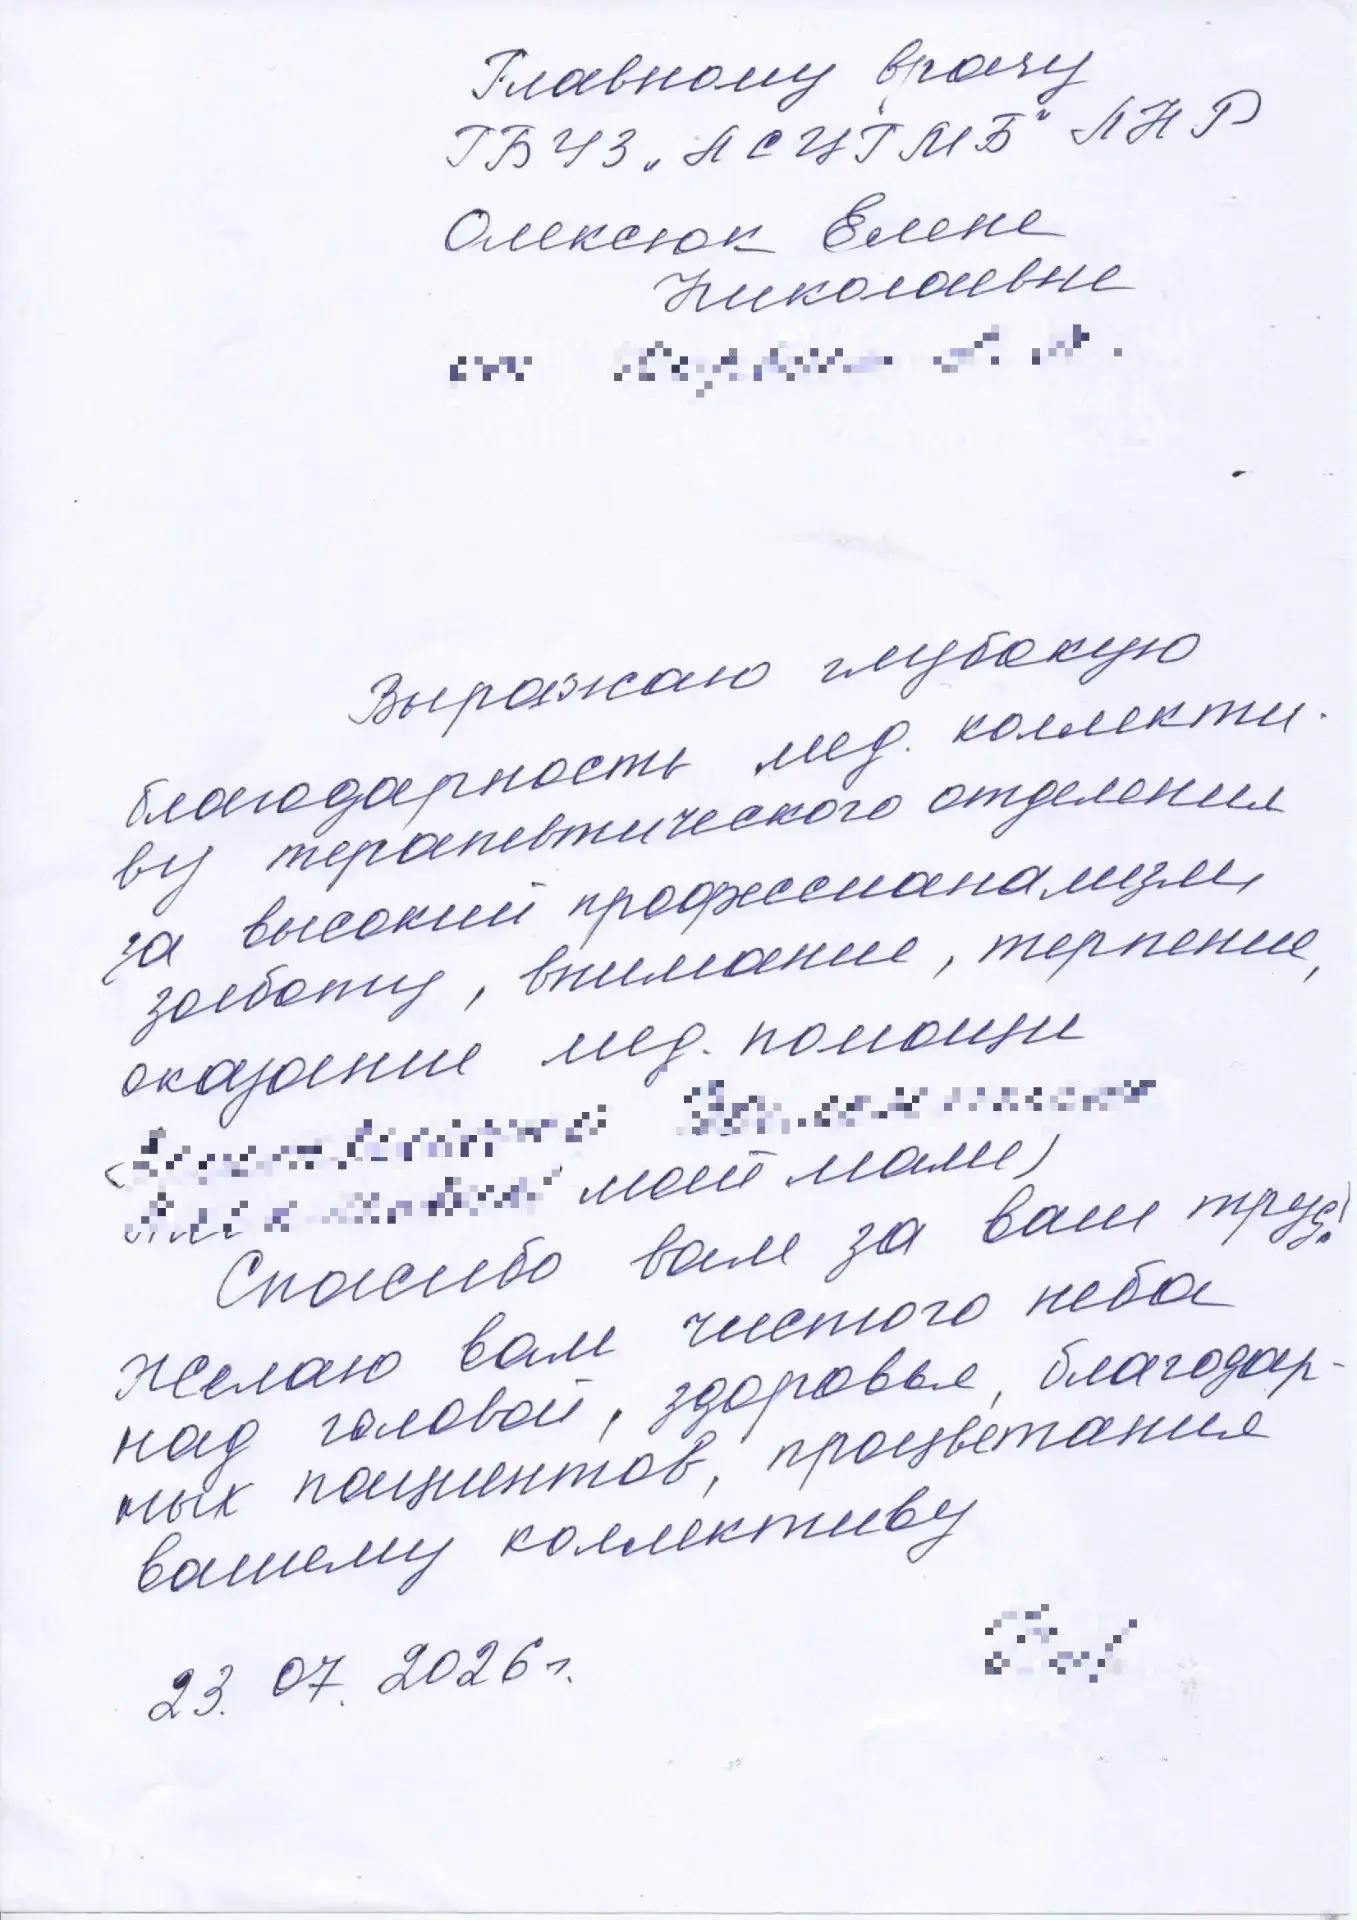 Главному врачу
ГБУЗ „АСЦГМБ" ЛНР
Олексюк Елене
Николаевне
от
Выражаю глубокую
благодарность мед. коллекти-
ву терапевтического отделения
за высокий профессианализм,
заботу, внимание, терпение,
оказание мед. помощи
(
моей маме)
Спасибо вам за ваш труд!
Желаю вам чистого неба
над головой, здоровья, благодар-
ных пациентов, процветания
вашему коллективу
23.07.2026г.